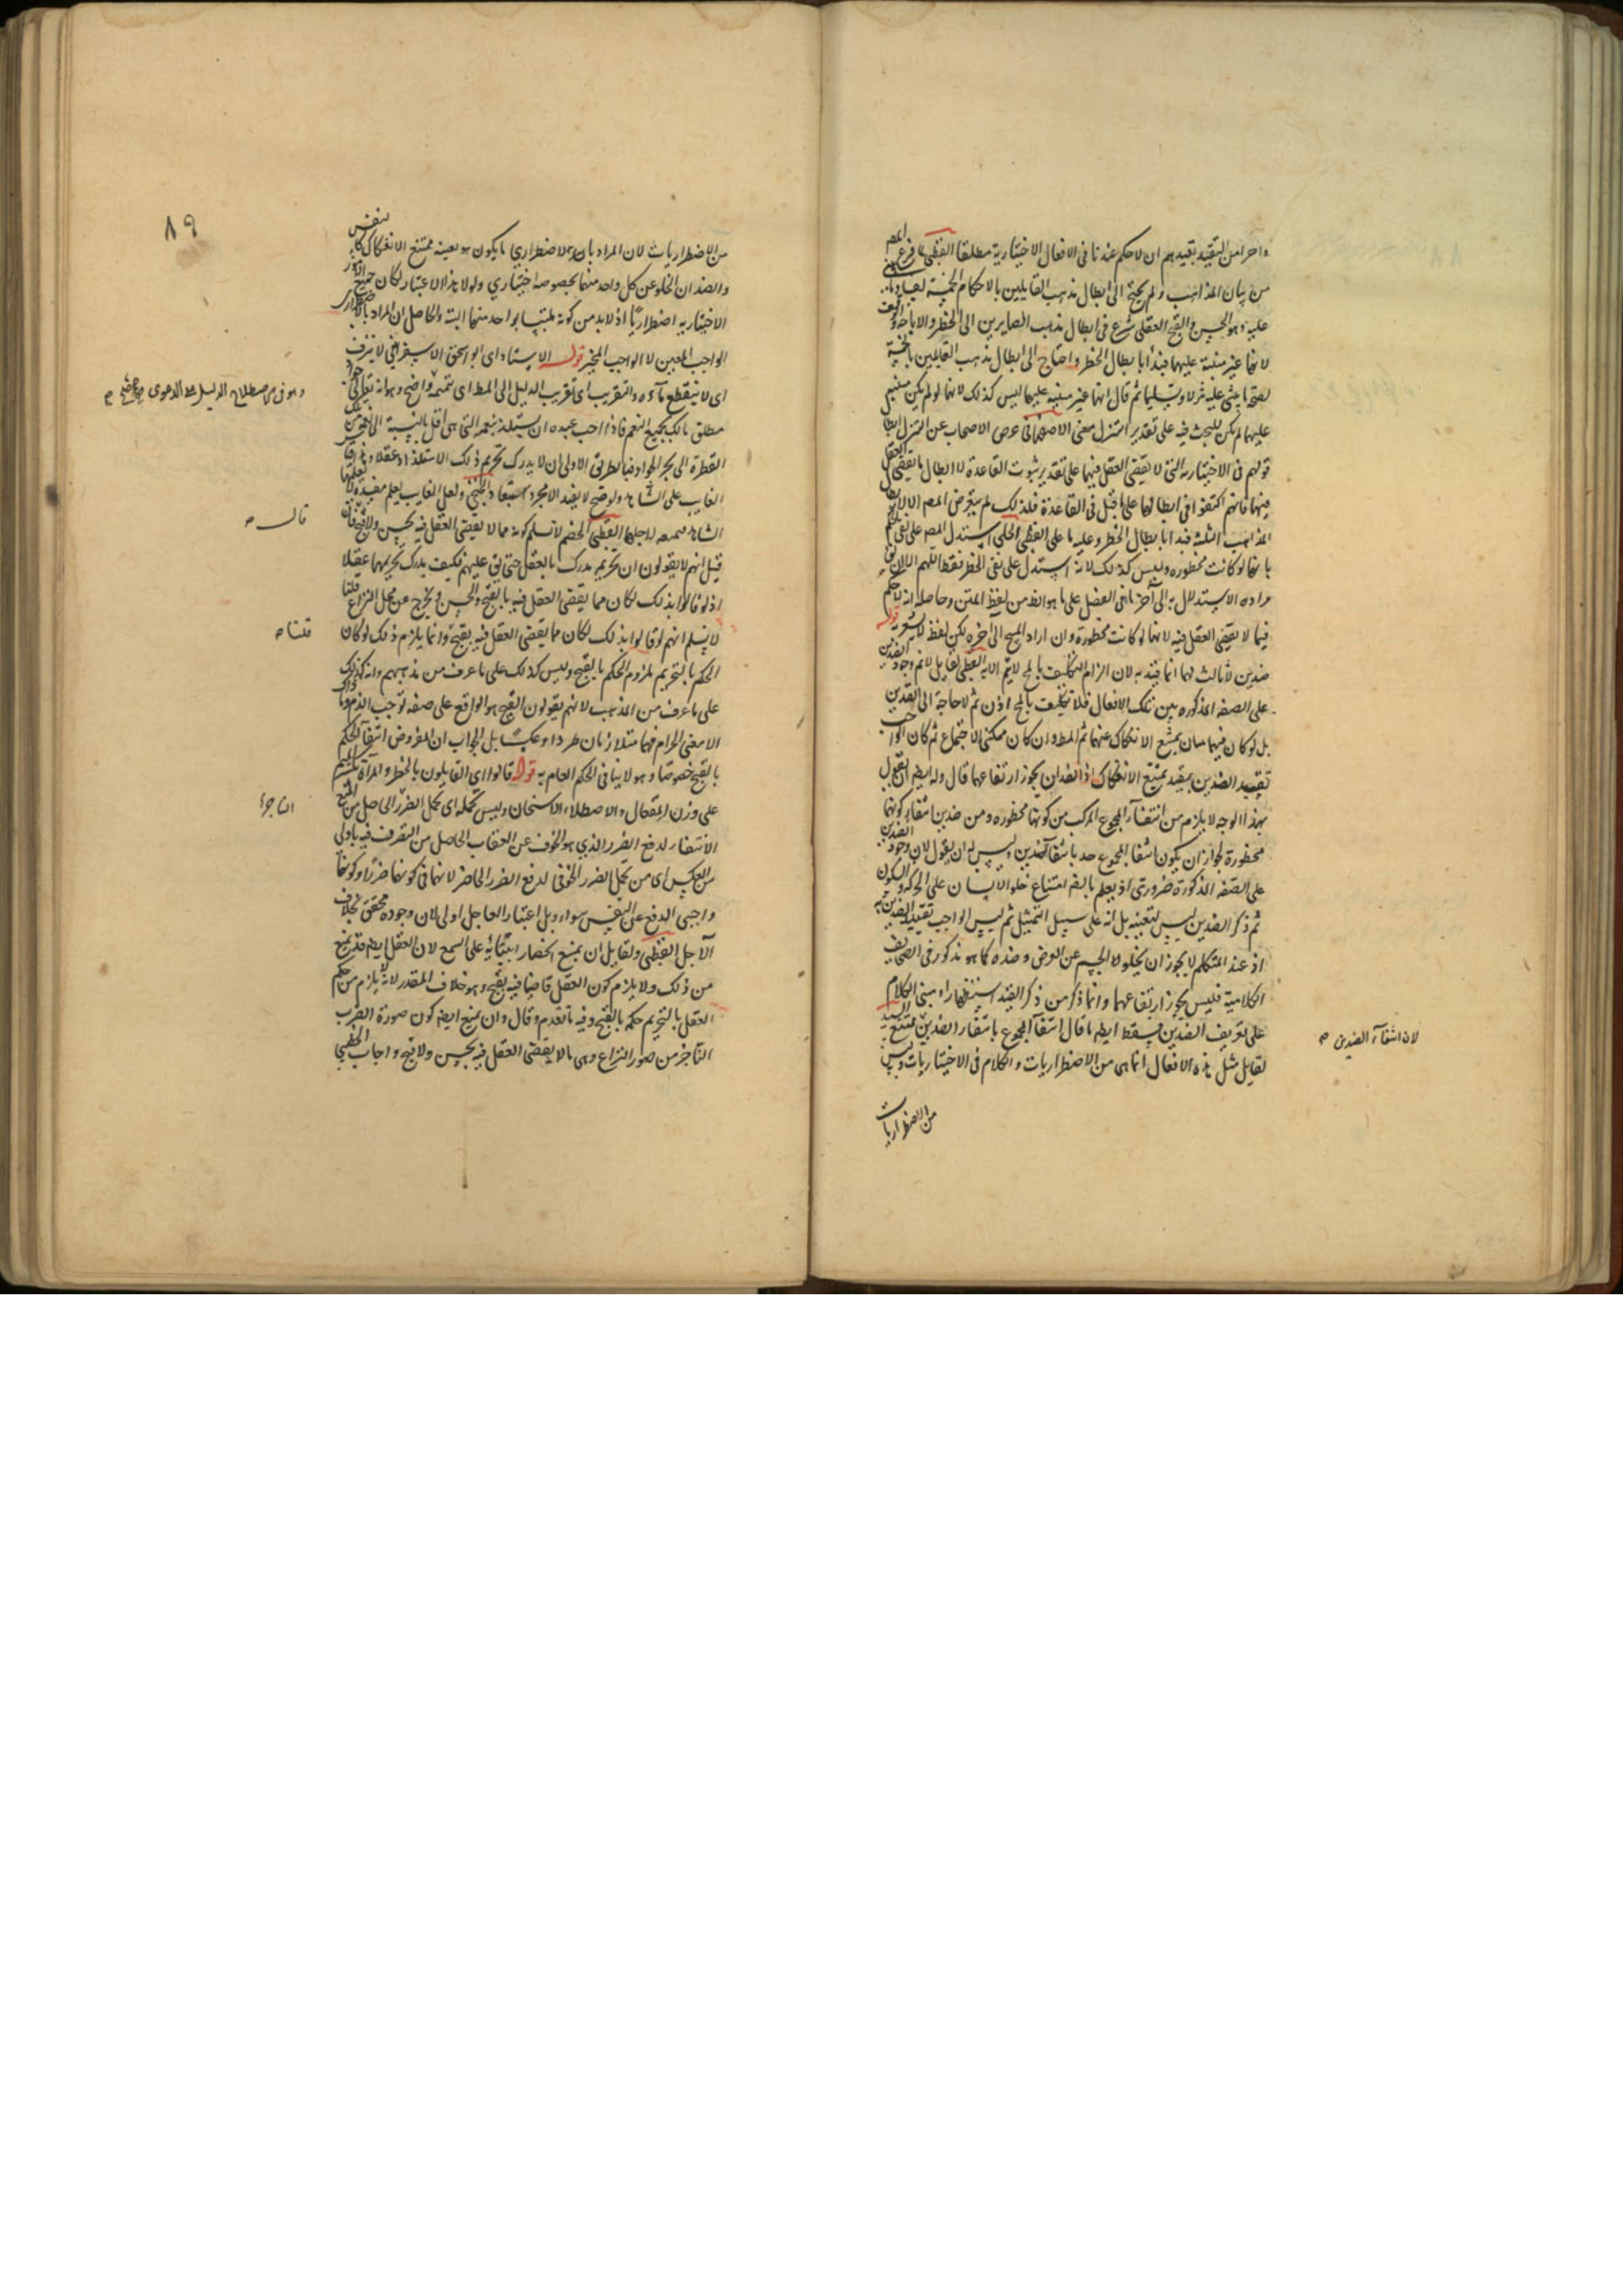 واحد من التقييد تقييدهم ان لا حكم عندنا فى الافعال الاختيارية مطلقا القطبى لما فرغ المصر
من بيان المذاهب ولم يحتج الى ابطال مذهب القايلين بالاحكام الخمسة
عليه وهو الحسن والقبح العقلى شرع فى ابطال مذهب الصايرين الى الحظر والاباحة والوقف
لانها غير مبنية عليهما فبدأ بابطال الحظر واحتاج الى ابطال مذهب القايلين بالخمسة
ثم قال انها غير مبنية عليهما ليس كذلك لانها لو لم يكن مبنية
عليهما لم يكن للبحث فيه على تقدير التنزل معنى الاصفهانى غرض الاصحاب عن التنزل ابطال
قولهم فى الاختيارية التى لا يقضى العقل فيها على تقدير ثبوت القاعدة لا ابطال ما يقضى العقل
فيها فانهم اكتفوا فى ابطالها على ما قيل فى القاعدة فلذلك لم يتعرض المصر الا لابطال
المذاهب الثلثة فبدا بابطال الحظر وعليه ما على القطبى الحلى استدل المصر على نفى الحكم
بانها لو كانت محظورة وليس كذلك لانه استدل على نفى الحظر فقط اللهم الا ان يق
مراده الاستدلال به الى آخر ما فى الفصل على ما هو الظ من لفظ المتن وحاصله انه لا حكم
فيما لا يقضى العقل فيه لانها لو كانت محظورة وان اراد المبيح الى آخره لكن لفظ لا يشعر به قوله
ضدين لا ثالث لهما انما قيد به لان الزام التكليف بالمح لا يتم الا به القطبى لقايل لا نم وجود الضدين
على الصفة المذكورة بين تلك الافعال فلا تكليف بالمح اذن ثم لا حاجة الى القيدين
بل لو كان فيها ضدان يمتنع الانفكاك عنهما ثم المط وان كان ممكنى الاجتماع ثم كان الواجب
تقييد الضدين بقيد يمتنع الانفكاك اذ الضدان يجوز ارتفاعهما قال وله ايضا ان يقول
بهذا الوجه لا يلزم من انتفاء المجموع المركب من كونها محظورة ومن ضدين انتفاء كونها
محظورة لجواز ان يكون انتفا المجموع حد بانتفا الضدين وليس له ان يقول لان وجود الضدين
على الصفة المذكورة ضرورى اذ يعلم بالضر امتناع خلو الانسان على الحركة والسكون
ثم ذكر الضدين ليس لتعينه بل انه على سبيل التمثيل ثم ليس الواجب تقييد الضدين به
اذ عند المتكلم لا يجوز ان يخلو الجسم عن العرض وضده كما هو مذكور فى الصحايف
الكلامية فليس يجوز ارتفاعهما وانما ذكر من ذكر القيد استظهارا ومبنى الكلام
على تعريف الضدين يسقط ايضا ما قال انتفا المجموع بانتفاء الضدين ممتنع
لقايل مثل هذه الافعال انما هى من الاضطراريات والكلام فى الاختياريات وليس
من الاضطراريات
لان انتفاء الضدين
٨٩
من الاضطراريات لان المراد بالاضطرارى ما يكون هو بعينه ممتنع الانفكاك كالتنفس
والضدان الخلو عن كل واحد منهما بخصوصه اختيارى ولولا هذا الاعتبار لكان جميع الامور
الاختيارية اضطراريا اذ لا بد من كونه ملتبسا بواحد منهما البتة والحاصل ان المراد بالاضطرارى
الواجب المعين لا الواجب المخير قوله الاستاد اى ابو اسحق الاسفراينى لا ينزف
اى لا ينقطع ماءه والتقريب اى تقريب الدليل الى المط اى تتميمه واضح وهو انه تعالى جواد
مطلق مالك بجميع النعم فاذا احب عبده ان يستلذ بنعمه التى هى اقل بالنسبة الى نعمه من تلك
القطرة الى بحر الجواد فبالطريق الاولى ان لا يدرك تحريم ذلك الاستلذاذ عقلا
الغايب على الشاهد ولو صح لا يفيد الا مجرد استبعاد الحلى ولعل الغايب يعلم مفسدة
الشاهد لاجلها القطبى الخصم لا نسلم كونه مما لا يقضى العقل فيه بحسن ولا قبح فان
قيل انهم لا يقولون ان تحريم مدرك بالعقل حتى يق عليهم فكيف يدرك تحريمها عقلا
اذ لو قالوا بذلك لكان مما يقضى العقل فيه بالقبح والحسن ويخرج عن محل النزاع قلنا
لا نسلم انهم لو قالوا بذلك لكان مما يقضى العقل فيه بقبح وانما يلزم ذلك لو كان
الحكم بالتحريم ملزوم الحكم بالقبح وليس كذلك على ما عرف من مذهبهم وانه كذلك
على ما عرف من المذهب لانهم يقولون القبيح هو الواقع على صفة توجب الذم وما ذاك
الا معنى الحرام فهما متلازمان طردا وعكسا بل الجواب ان المفروض انتفا الحكم
بالقبح خصوصا وهو لا ينافى الحكم العام به قوله قالوا اى القايلون بالحظر والمراة
على وزن المفعال والاصطلاء الاسخان وليس تحمله اى تحمل الضرر الحاصل من المنع
الانتفاء لدفع الضرر الذى هو الخوف عن العقاب الحاصل من التصرف فيه باولى
من العكس اى من تحمل الضرر الخوفى لدفع الضرر الحاضر لانهما فى كونهما ضررا وكونهما
واجبى الدفع على النفس سواء وبل اعتبار العاجل اولى لان وجوده محقق بخلاف
الآجل القطبى ولقايل ان يمنع انحصار ابتنائه على السمع لان العقل ايضا قد يمنع
من ذلك ولا يلزم كون العقل قاضيا فيه بقبح وهو خلاف المقدر لانه لا يلزم من حكم
العقل بالتحريم حكمه بالقبح وفيه ما تقدم وقال وان يمنع ايضا كون صورة الضرب
الناجز من صور النزاع وهى ما لا يقضى العقل فيه بحسن ولا قبح واجاب الخطيبى
وهو فى اصطلاح الدليل على الدعوى
قال
قلنا
الناجز